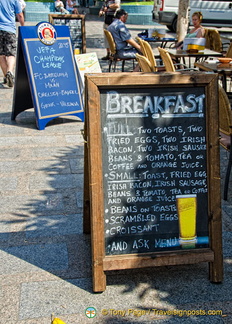 UEFA
CHAMPIONS
LEAGUE
FC BARCELONA
BREAKFAST
FULL: TWO TOASTS, TWO
FRIED EGGS, TWO IRISH
BACON, TWO IRISH SAUSAGE
BEANS & TOMATO, TEA OR
COFFEE AND ORANGE JUICE.
SMALL: TOAST, FRIED EGG
IRISH BACON, IRISH SAUSAGE,
BEANS & TOMATO, TEA OR
COFFEE AND ORANGE JUICE
BEANS ON TOAST
SCRAMBLED EGGS
CROISSANT
AND ASK MENU
© Tony Page / www.travelsignposts.com